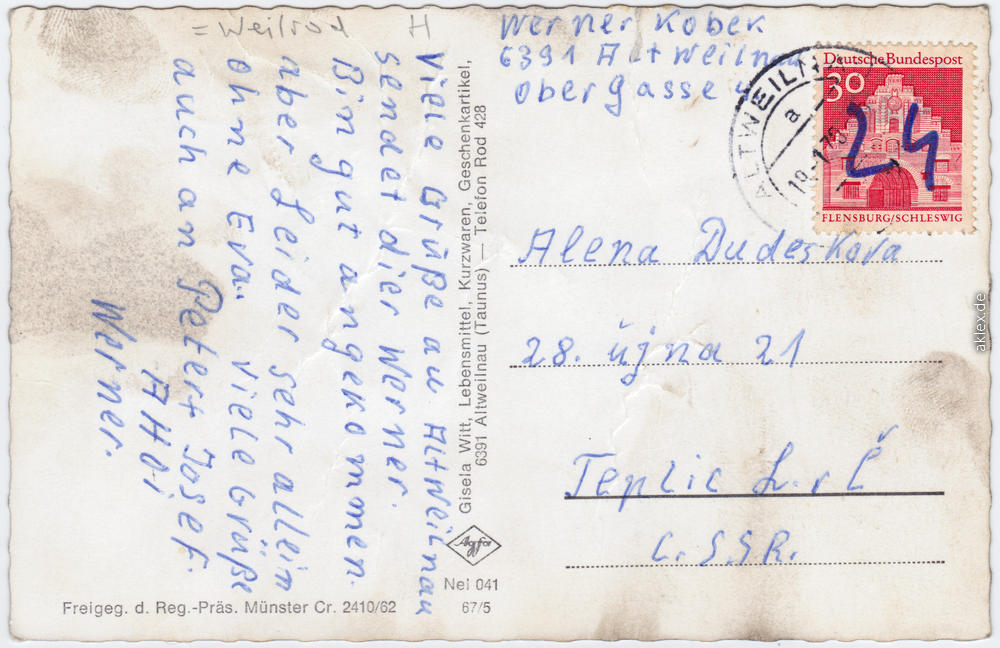 = Weilrod H
Viele Grüße au Altweilnau
sendet dier Werner.
Bin gut angekommen.
aber Leider sehr allein
ohne Eva. Viele Grüße
auch an Peter + Josef.
AHOi
Werner.
Gisela Witt, Lebensmittel, Kurzwaren, Geschenkartikel,
6391 Altweilnau (Taunus) — Telefon Rod 428
Agfa
Nei 041
67/5
Freigeg. d. Reg.-Präs. Münster Cr. 2410/62
Werner Kobek
6391 Altweilnau
obergasse 4
ALTWEILNAU
a
Deutsche Bundespost
30
24
FLENSBURG/SCHLESWIG
Alena Dudeskova
28. újna 21
Teplic L.r Č
C.S.S.R.
aklex.de